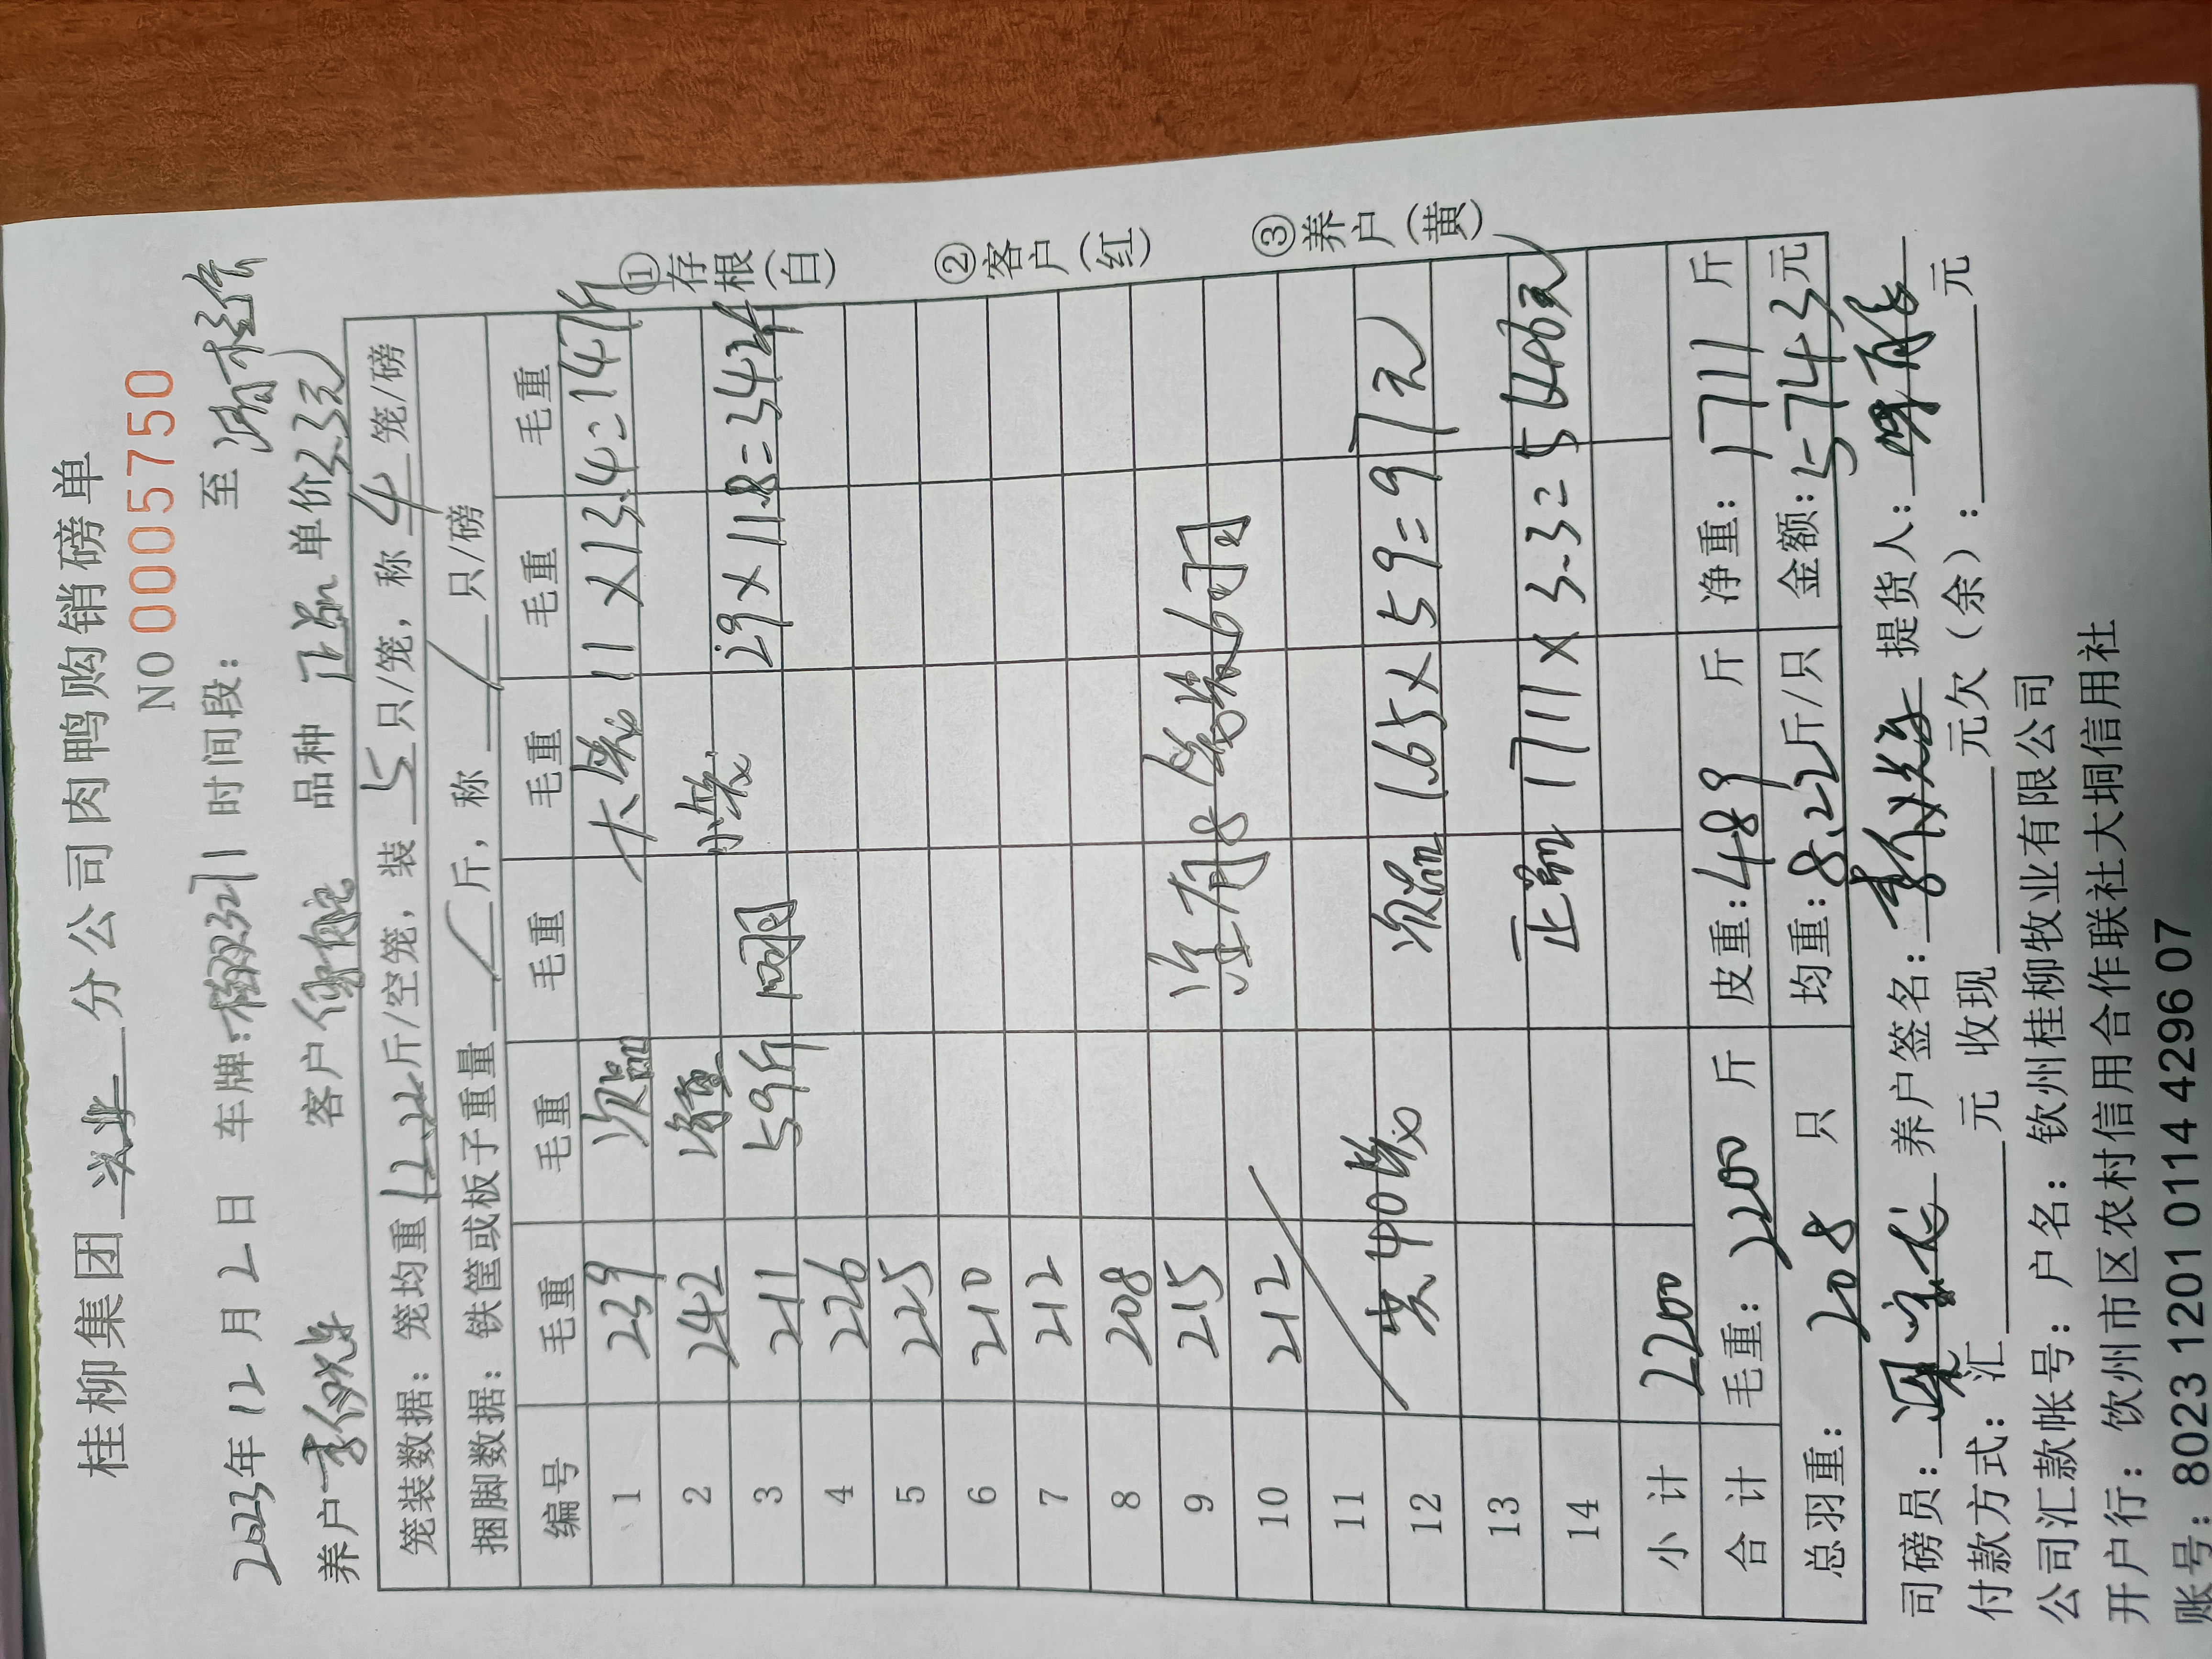 桂柳集团 兴业 分公司肉鸭购销磅单
NO 0005750
2023年12月2日 车牌: 时间段: 至
养户 李 客户 品种 正品 单价3.3元
笼装数据: 笼均重 12.22 斤/空笼, 装 5 只/笼, 称 4 笼/磅
捆脚数据: 铁筐或板子重量 / 斤, 称 / 只/磅
编号 毛重 毛重 毛重 毛重 毛重 毛重
1 239 次品 大 11×13.4=147斤
2 242 净重 小装 29×11.8=342斤
3 211 59斤
4 226
5 225
6 210
7 212
8 208
9 215
10 212
11
12 共40笼 次品 1.65×59=97元
13
14 正品 1711×3.3=5646元
小计 2200
合计 毛重: 2200 斤 皮重: 489 斤 净重: 1711 斤
总羽重: 208 只 均重: 8.22 斤/只 金额: 5743 元
司磅员: 养户签名: 李 提货人:
付款方式: 汇 元 收现 元欠(余): 元
公司汇款帐号: 户名: 钦州桂柳牧业有限公司
开户行: 钦州市区农村信用合作联社大垌信用社
账号: 8023 1201 0114 4296 07
①存根(白)
②客户(红)
③养户(黄)